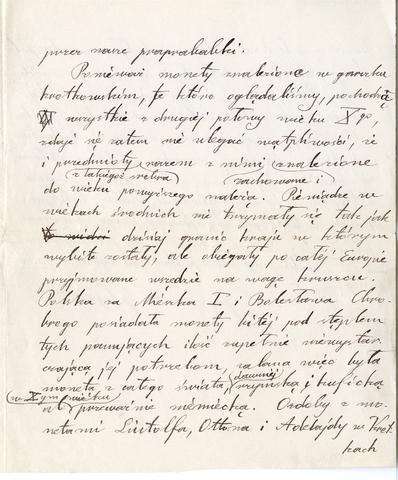 przez nasze praprababki.
Ponieważ monety znalezione w garnku
krotkowskim, te które oglądaliśmy, pochodzą
wszystkie z drugiej połowy wieku Xgo,
zdaje się zatem nie ulegać wątpliwości, że
i przedmioty razem z nimi znalezione
z takiegoż srebra zachowane i
do wieku powyższego należą. Pieniądze w
wiekach średnich nie trzymały się tak jak
dzisiaj granic kraju w którym
wybite zostały, ale obiegały po całej Europie
przyjmowane wszędzie na wagę kruszcu.
Polska za Mieszka I i Bolesława Chro-
brego posiadała monety bitej pod stęplem
tych panujących ilość zupełnie niewystar-
czającą jej potrzebom, zalana więc była
monetą z całego świata, dawniej rzymską i kuficką
w Xym wieku przeważnie niemiecką. Ozdoby z mo-
netami Liutolfa, Ottona i Adelajdy w Krot-
kach